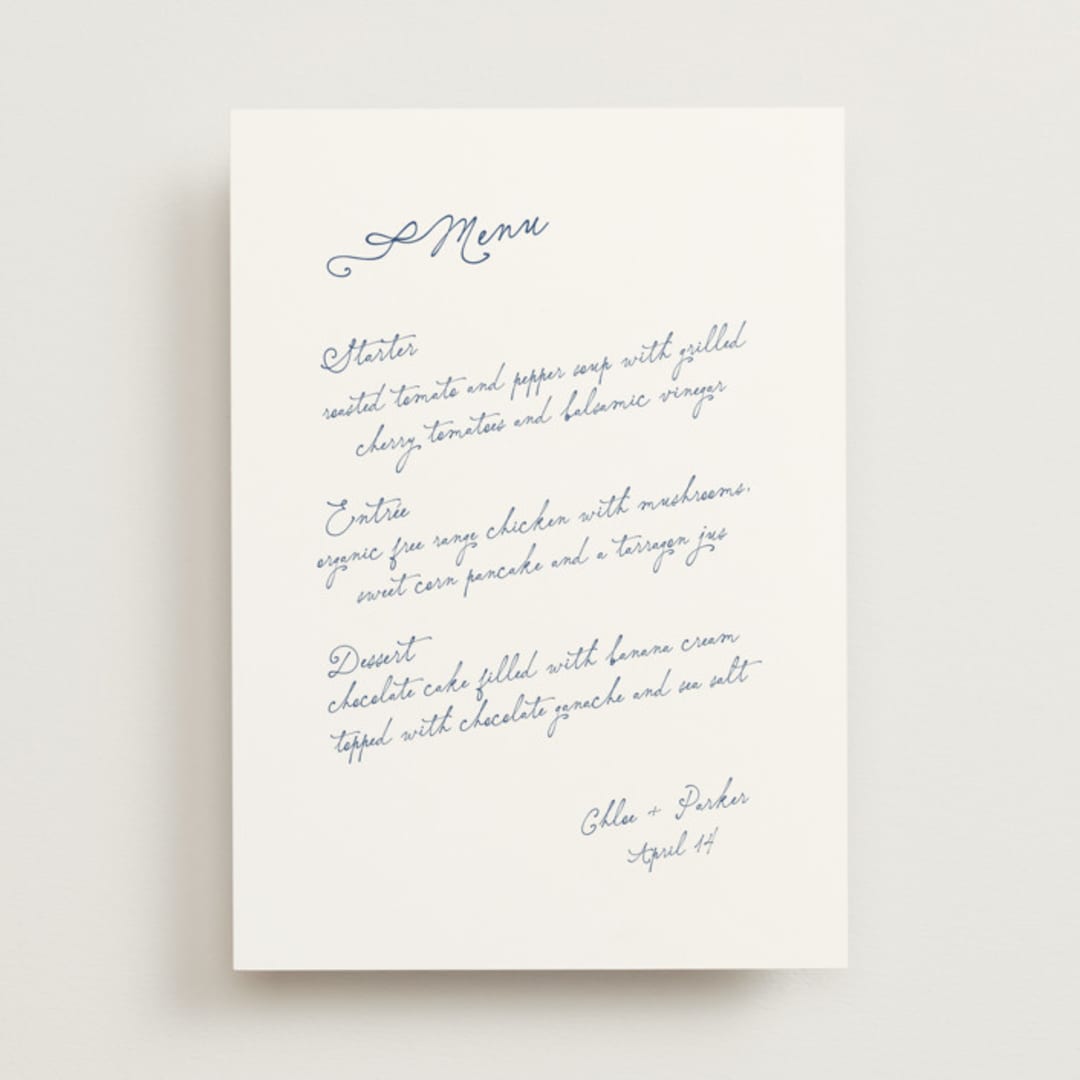 Menu
Starter
roasted tomato and pepper soup with grilled
cherry tomatoes and balsamic vinegar
Entrée
organic free range chicken with mushrooms,
sweet corn pancake and a tarragon jus
Dessert
chocolate cake filled with banana cream
topped with chocolate ganache and sea salt
Chloe + Parker
April 14